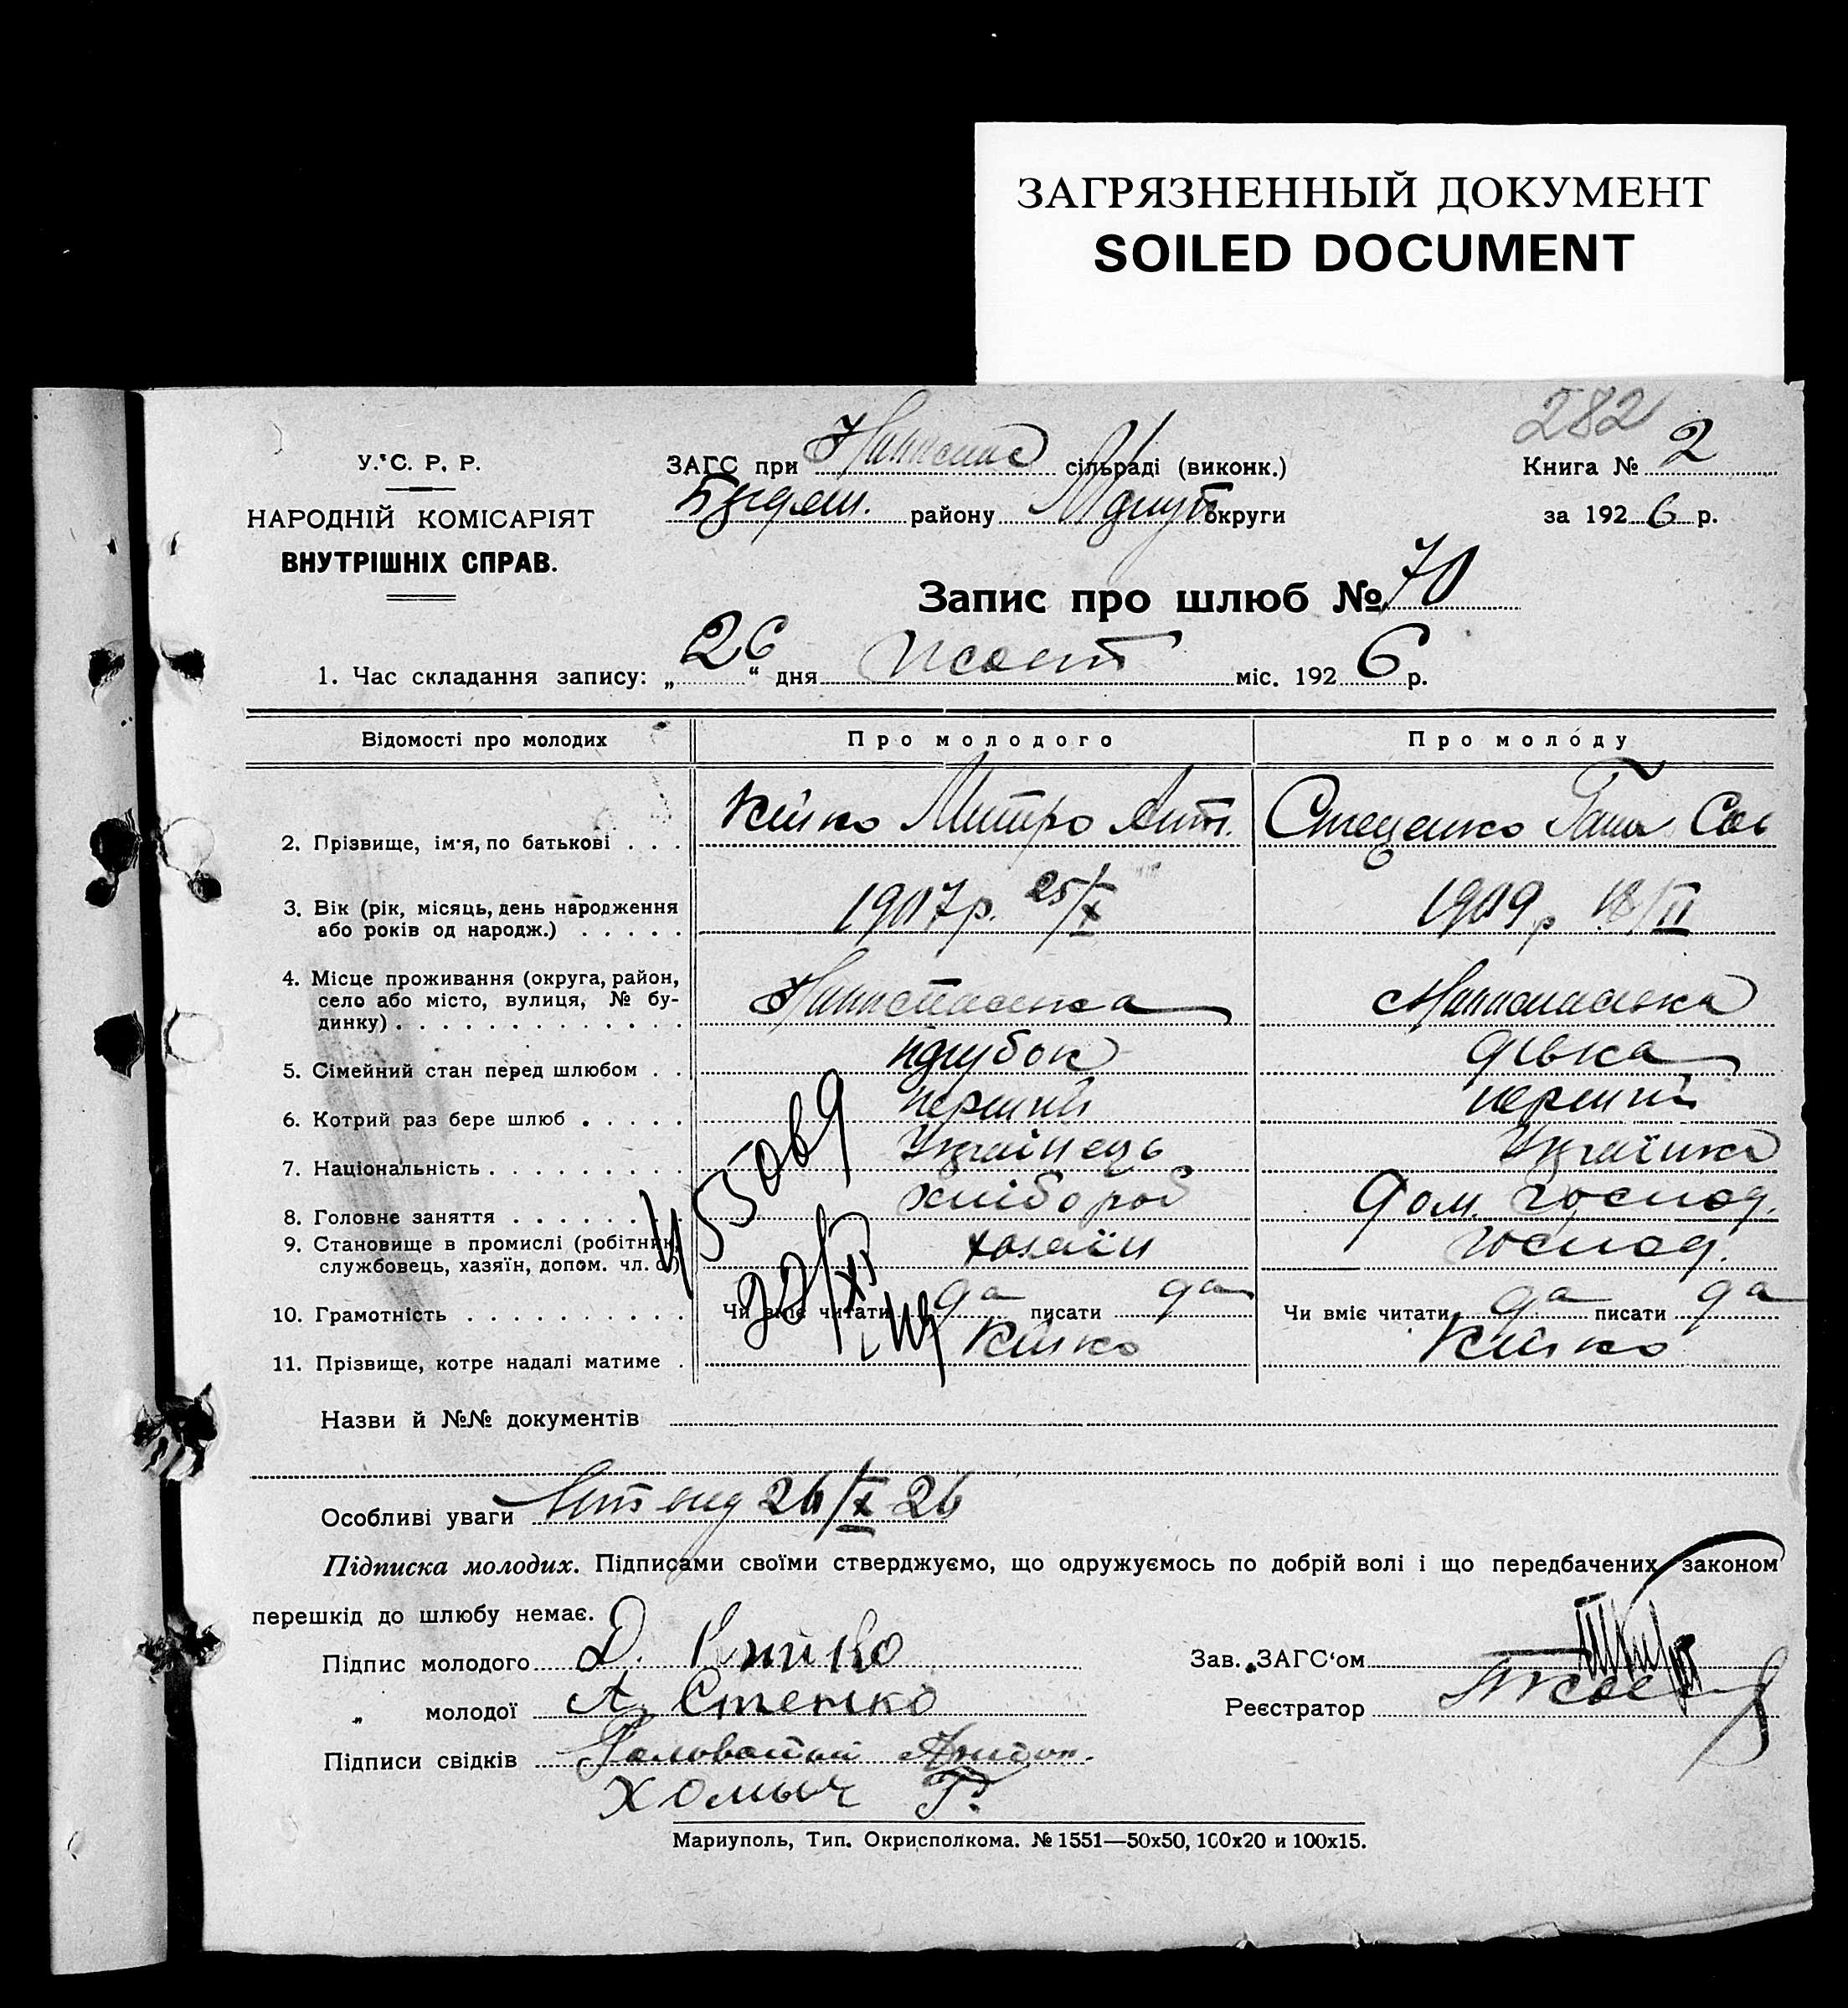 ЗАГРЯЗНЕННЫЙ ДОКУМЕНТ
SOILED DOCUMENT
282
У. С. Р. Р.
НАРОДНІЙ КОМІСАРІЯТ
ВНУТРІШНІХ СПРАВ.
ЗАГС при сільраді (виконк.)
району округи
Книга № 2
за 1926 р.
Запис про шлюб № 70
1. Час складання запису: „26“ дня жовт міс. 1926 р.
Відомості про молодих Про молодого Про молоду
2. Прізвище, ім'я, по батькові . . . Кійко Митро Ант. Стеценко Гана Сав
3. Вік (рік, місяць, день народження
або років од народж.) . . . . . 1907 р. 25/X 1909 р 18/II
4. Місце проживання (округа, район,
село або місто, вулиця, № бу-
динку) . . . . . . . . . . . . .
5. Сімейний стан перед шлюбом . . парубок дівка
6. Котрий раз бере шлюб . . . . . перший перший
7. Національність . . . . . . . . . Українець Українка
8. Головне заняття . . . . . . . . хлібороб Дом. господ.
9. Становище в промислі (робітник,
службовець, хазяїн, допом. чл. с.) хазяїн господ.
10. Грамотність . . . . . . . . . . Чи вміє читати да писати да Чи вміє читати да писати да
11. Прізвище, котре надалі матиме . Кійко Кійко
Назви й №№ документів
Особливі уваги 26/X 26
Підписка молодих. Підписами своїми стверджуємо, що одружуємось по добрій волі і що передбачених законом
перешкід до шлюбу немає.
Підпис молодого Д. Кийко
Зав. ЗАГС'ом
„ молодої А. Стенко
Реєстратор
Підписи свідків
Хомыч Г.
Мариуполь, Тип. Окрисполкома. № 1551—50х50, 100х20 и 100х15.